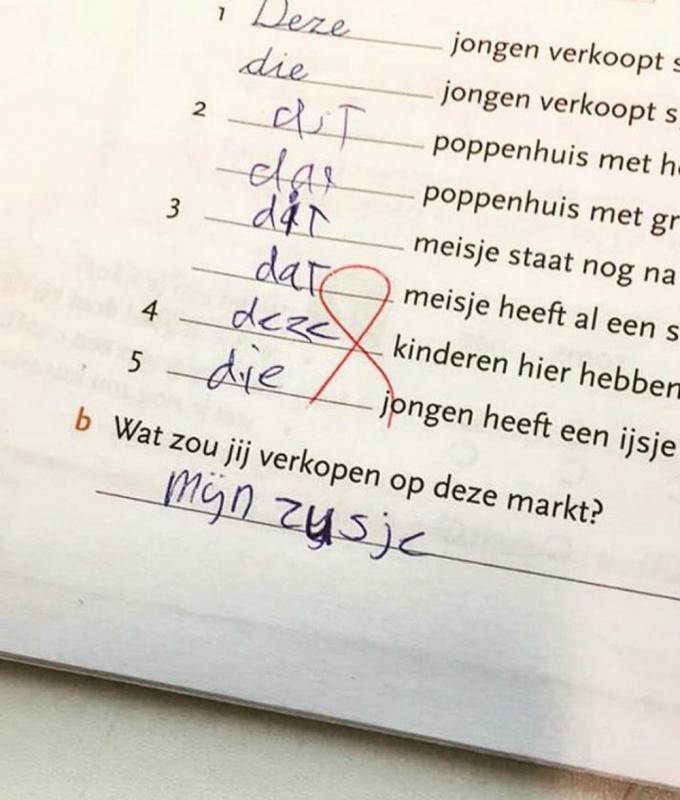 1 Deze jongen verkoopt s
die jongen verkoopt s
2 dit poppenhuis met h
dat poppenhuis met gr
3 dit meisje staat nog na
dat meisje heeft al een s
4 deze kinderen hier hebben
5 die jongen heeft een ijsje
b Wat zou jij verkopen op deze markt?
mijn zusje